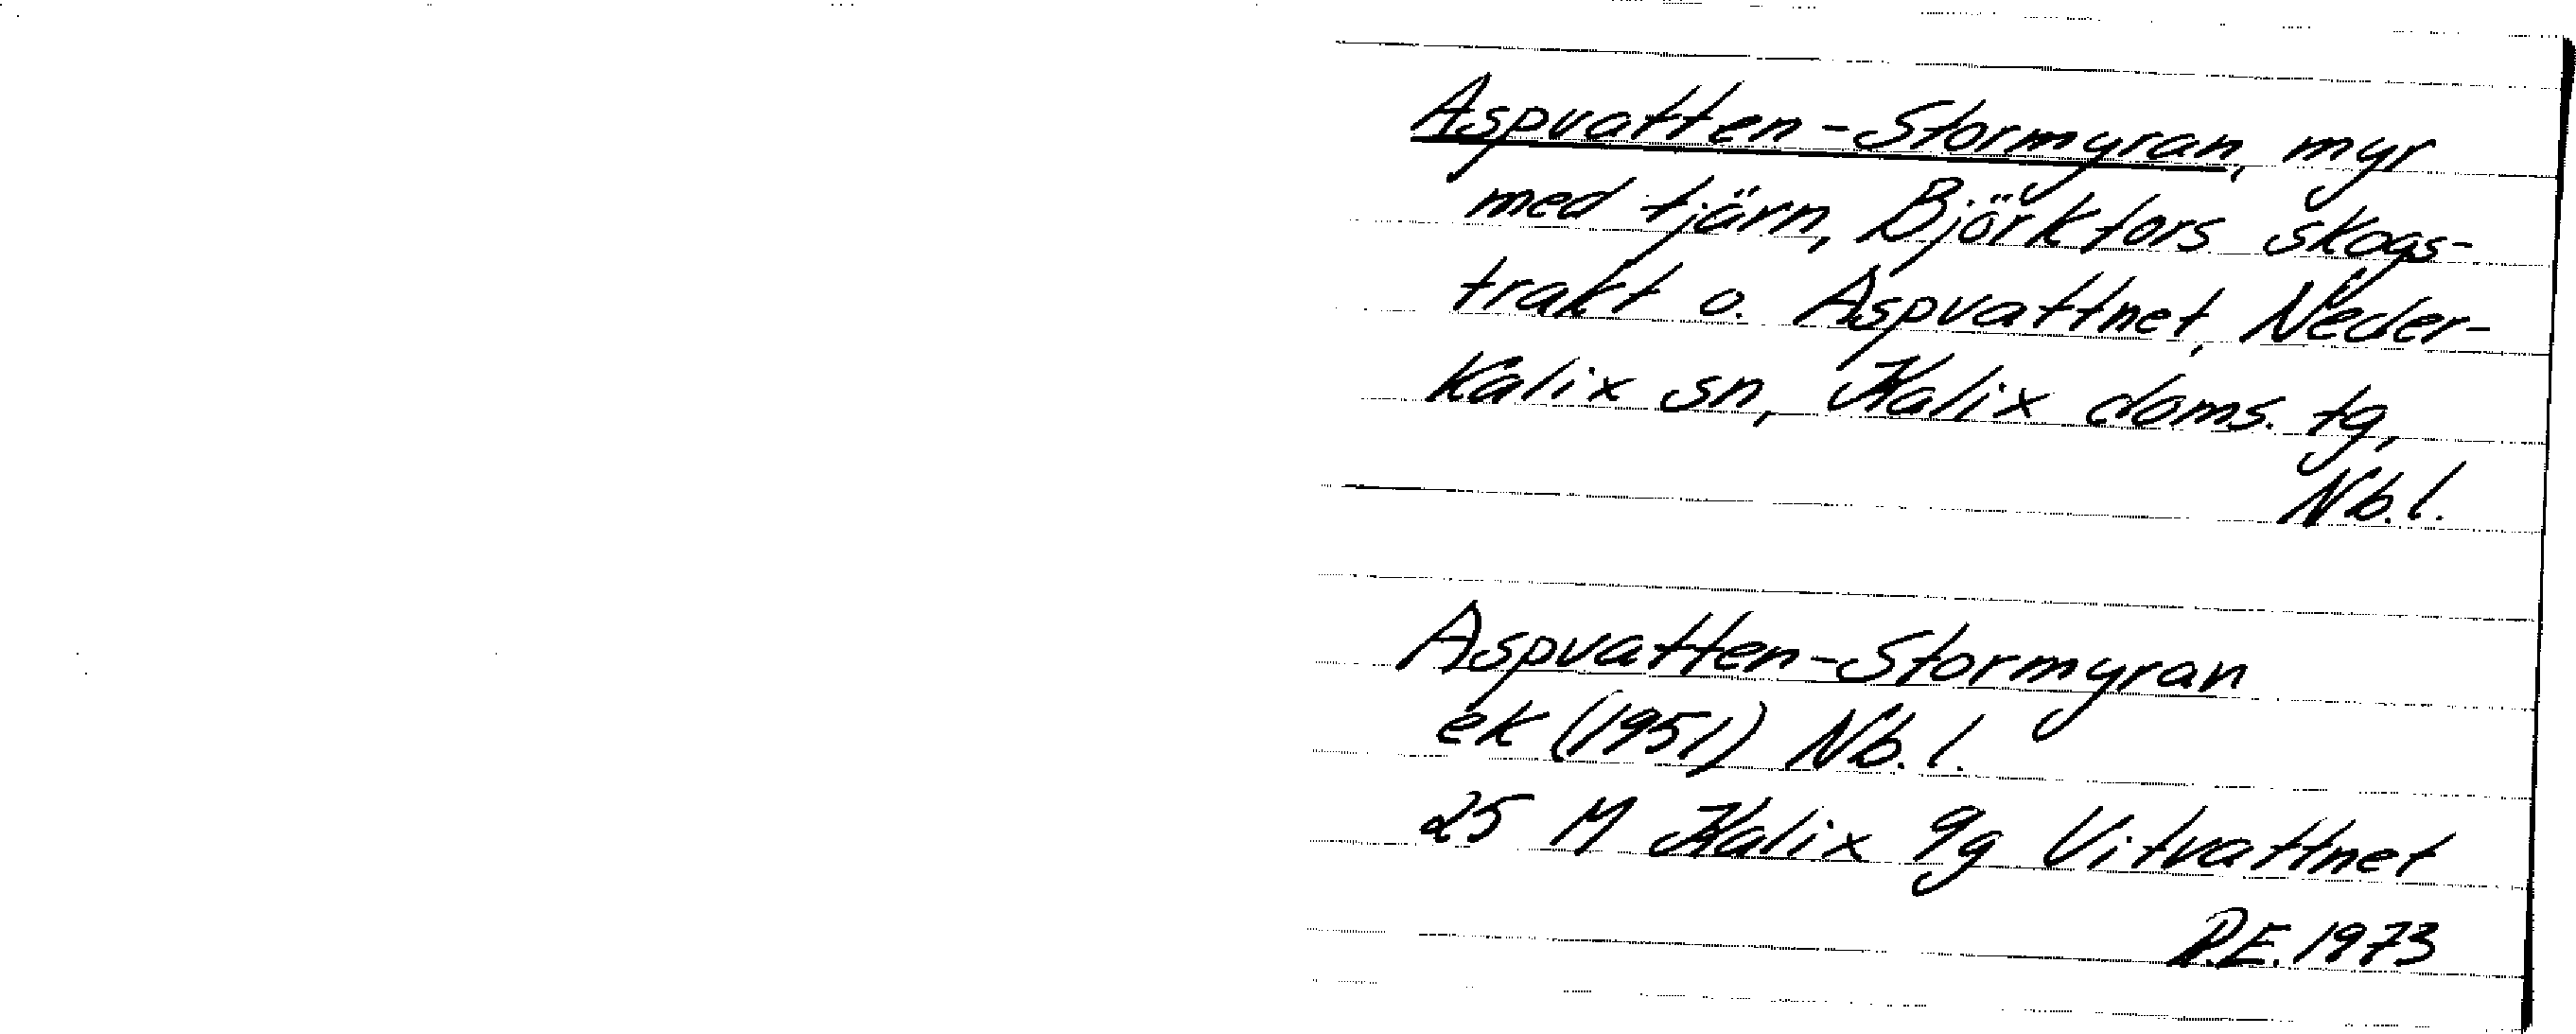 Aspvatten-Stormyran, myr
med tjärn, Björkfors skogs-
trakt o. Aspvattnet, Neder-
Kalix sn, Kalix doms. tg,
Nb.l.
Aspvatten-Stormyran
ek (1951) Nb.l.
25 M Kalix 9g Vitvattnet
R.E. 1973